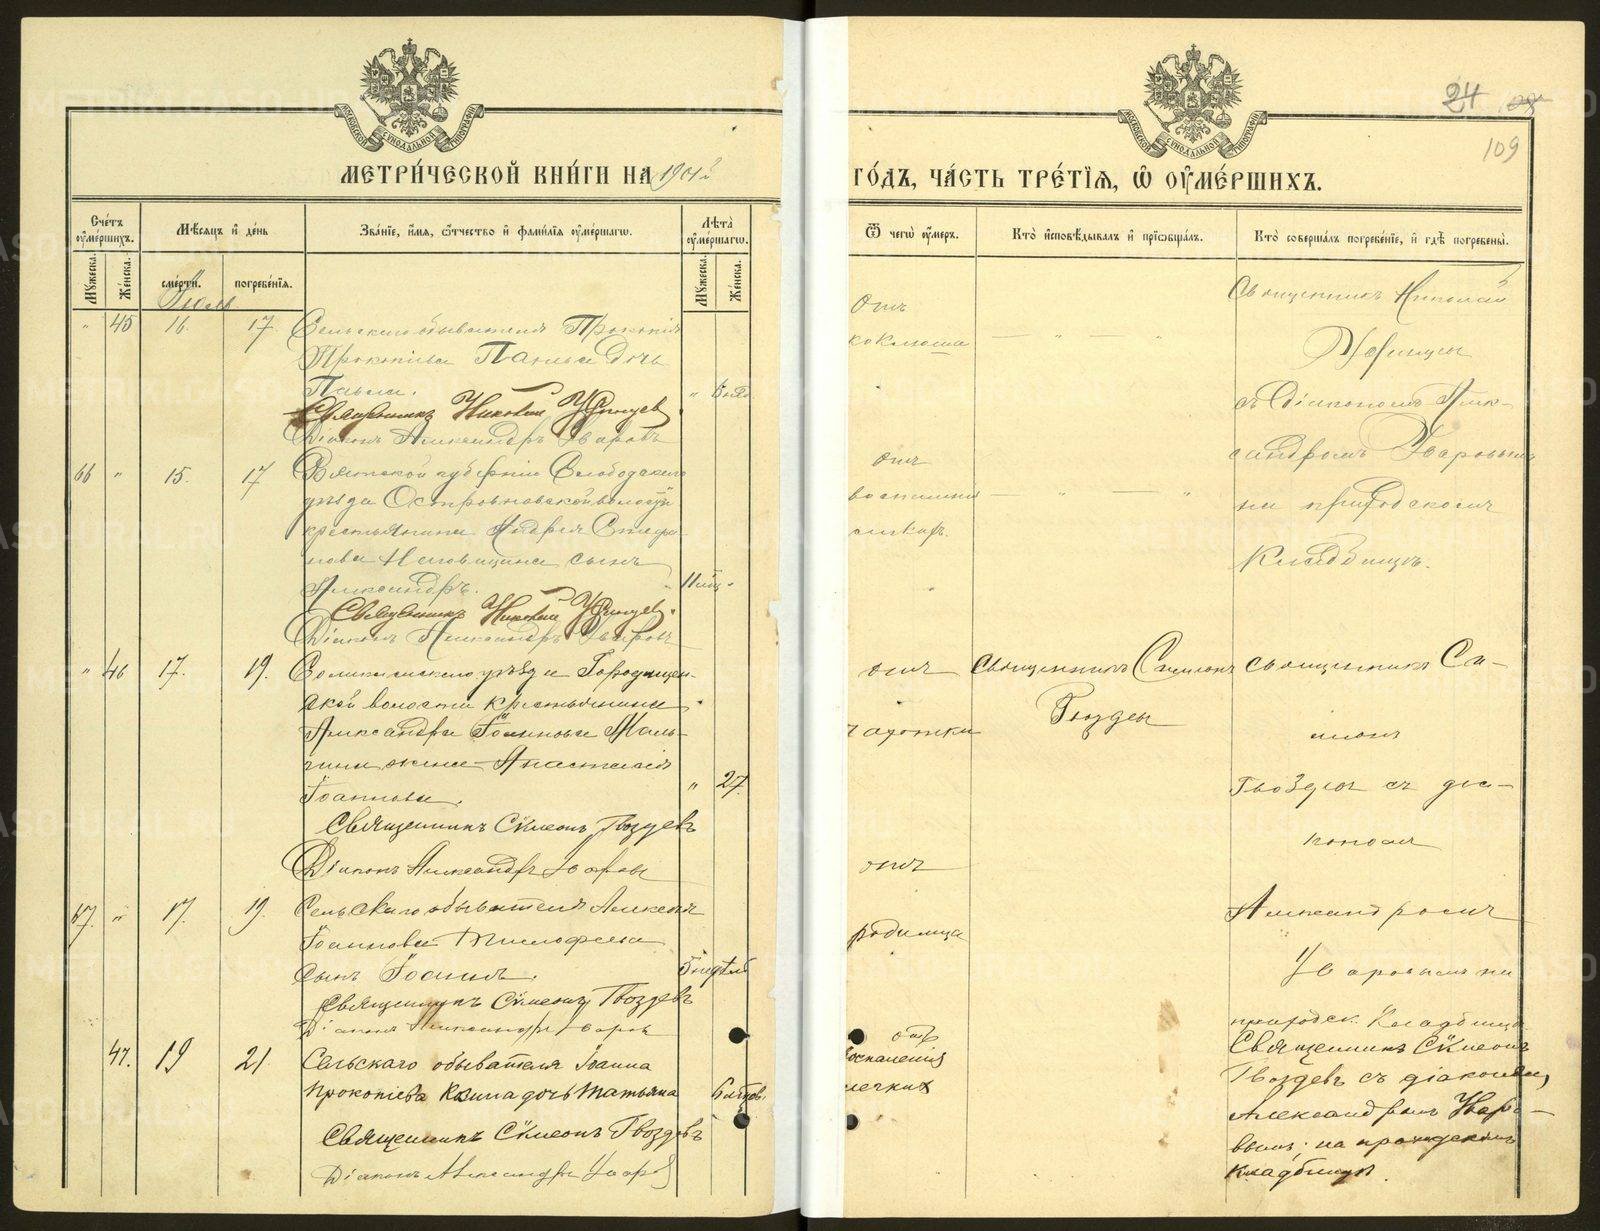 МЕТРИ́ЧЕСКОЙ КНИ́ГИ НА 1901
ГО́ДЪ, ЧА́СТЬ ТРЕ́ТІѦ, Ѡ ОУ҆МЕ́РШИХЪ.
24
109
Сче́тъ оу҆ме́ршихъ.
Мѣ́сяцъ и҆ де́нь
Зва́ніе, и҆́мѧ, ѻ҆́тчество и҆ фами́лія оу҆ме́ршагѡ.
Лѣ́та оу҆ме́ршагѡ.
Ѿ чегѡ̀ оу҆́меръ.
Кто̀ и҆сповѣ́дывалъ и҆ прїѡбща́лъ.
Кто̀ соверша́лъ погребе́ніе, и҆ гдѣ̀ погребены̀.
Мꙋ́жеска.
Же́нска.
сме́рти.
погребе́нія.
Мꙋ́жеска.
Же́нска.
Іюль
" 45 16. 17. Сельскаго обывателя Прокопія
Прокопіева дочь
Священникъ Николай
Діаконъ Александръ Уваровъ
отъ
коклюша
Священникъ Николай
съ Діакономъ Алек-
сандромъ Уваровымъ
на приходскомъ
Кладбищѣ.
66 " 15. 17 Вятской губерніи Слободскаго
уѣзда Островновской волости
крестьянина Андрея Стефа-
нова сынъ
Александръ.
Священникъ Николай
Діаконъ Александръ Уваровъ
отъ
воспаленія
" 46 17. 19. Соликамскаго уѣзда Городищен-
ской волости крестьянина
Александра Іоаннова Маль-
гина жена Анастасія
Іоаннова. " 27.
Священникъ Сѵмеонъ Гвоздевъ
Діаконъ Александръ Уваровъ
отъ
чахотки
Священникъ Симеонъ
Гвоздевъ
священникъ Си-
меонъ
Гвоздевъ съ діа-
кономъ
Александромъ
Уваровымъ на
приходск. Кладбищѣ
67. " 17. 19. Сельскаго обывателя Алексѣя
Іоаннова Тимофеева
сынъ Іоаннъ. 5 недѣль
Священникъ Сѵмеонъ Гвоздевъ
Діаконъ Александръ Уваровъ
отъ
родимца
47. 19 21 Сельскаго обывателя Іоанна
Прокопіева дочь Татьяна
Священникъ Сѵмеонъ Гвоздевъ
Діаконъ Александръ Уваровъ
отъ
воспаленія
легкихъ
Священникъ Сѵмеонъ
Гвоздевъ съ діакономъ
Александромъ Уваро-
вымъ; на приходскомъ
кладбищѣ.